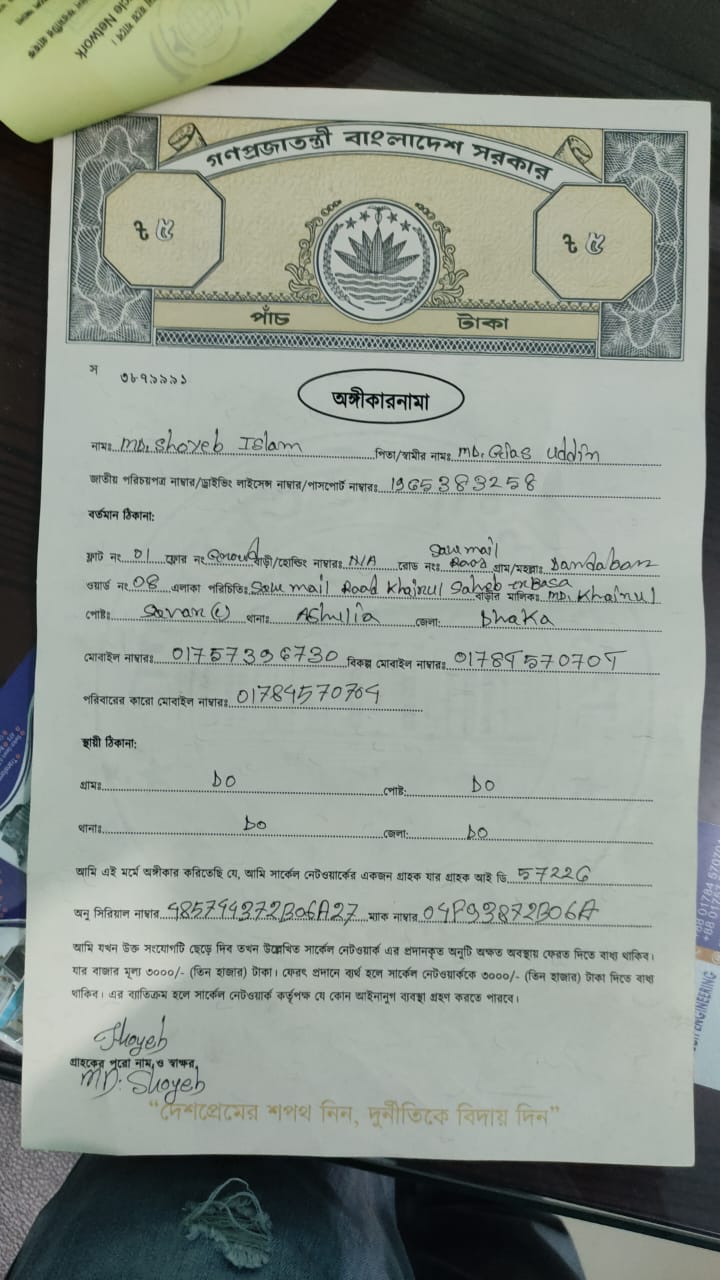 cle Network
গণপ্রজাতন্ত্রী বাংলাদেশ সরকার
৳ ৫ ৳ ৫
পাঁচ টাকা
স ৩৮৭১৯৯১
অঙ্গীকারনামা
নামঃ MD. Shoyeb Islam পিতা/স্বামীর নামঃ MD. Gias uddin
জাতীয় পরিচয়পত্র নাম্বার/ড্রাইভিং লাইসেন্স নাম্বার/পাসপোর্ট নাম্বারঃ 1965383258
বর্তমান ঠিকানা:
ফ্লাট নং 01 ফ্লোর নং বাড়ী/হোল্ডিং নাম্বারঃ N/A রোড নংঃ Saw mail Road গ্রাম/মহল্লাঃ Dandabar
ওয়ার্ড নং 08 এলাকা পরিচিতিঃ Saw mail Road Khairul Saheb er Basa বাড়ীর মালিকঃ MD. Khairul
পোষ্টঃ Savar থানাঃ Ashulia জেলা: Dhaka
মোবাইল নাম্বারঃ 01757396730 বিকল্প মোবাইল নাম্বারঃ
পরিবারের কারো মোবাইল নাম্বারঃ 01784570704
স্থায়ী ঠিকানা:
গ্রামঃ DO পোষ্ট: DO
থানাঃ DO জেলা: DO
আমি এই মর্মে অঙ্গীকার করিতেছি যে, আমি সার্কেল নেটওয়ার্কের একজন গ্রাহক যার গ্রাহক আই ডি 57226
অনু সিরিয়াল নাম্বার 485794372B06A27 ম্যাক নাম্বার 04P93872B06A
আমি যখন উক্ত সংযোগটি ছেড়ে দিব তখন উল্লেখিত সার্কেল নেটওয়ার্ক এর প্রদানকৃত অনুটি অক্ষত অবস্থায় ফেরত দিতে বাধ্য থাকিব।
যার বাজার মূল্য ৩০০০/- (তিন হাজার) টাকা। ফেরৎ প্রদানে ব্যর্থ হলে সার্কেল নেটওয়ার্ককে ৩০০০/- (তিন হাজার) টাকা দিতে বাধ্য
থাকিব। এর ব্যতিক্রম হলে সার্কেল নেটওয়ার্ক কর্তৃপক্ষ যে কোন আইনানুগ ব্যবস্থা গ্রহণ করতে পারবে।
Shoyeb
গ্রাহকের পুরো নাম ও স্বাক্ষর
MD: Shoyeb
“দেশপ্রেমের শপথ নিন, দুর্নীতিকে বিদায় দিন”